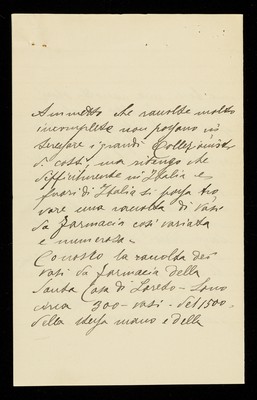 Ammetto che raccolte molto
incomplete non possono in
teressare i grandi Collezionisti
di costì ma ritengo che
difficilmente in Italia e
fuori di Italia si possa tro
vare una raccolta di vasi
da farmacia così variata
e numerosa =
Conosco la raccolta dei
vasi da farmacia della
Santa Casa di Loreto - Sono
circa 300 - vasi - del 1500 -
della stessa mano e della